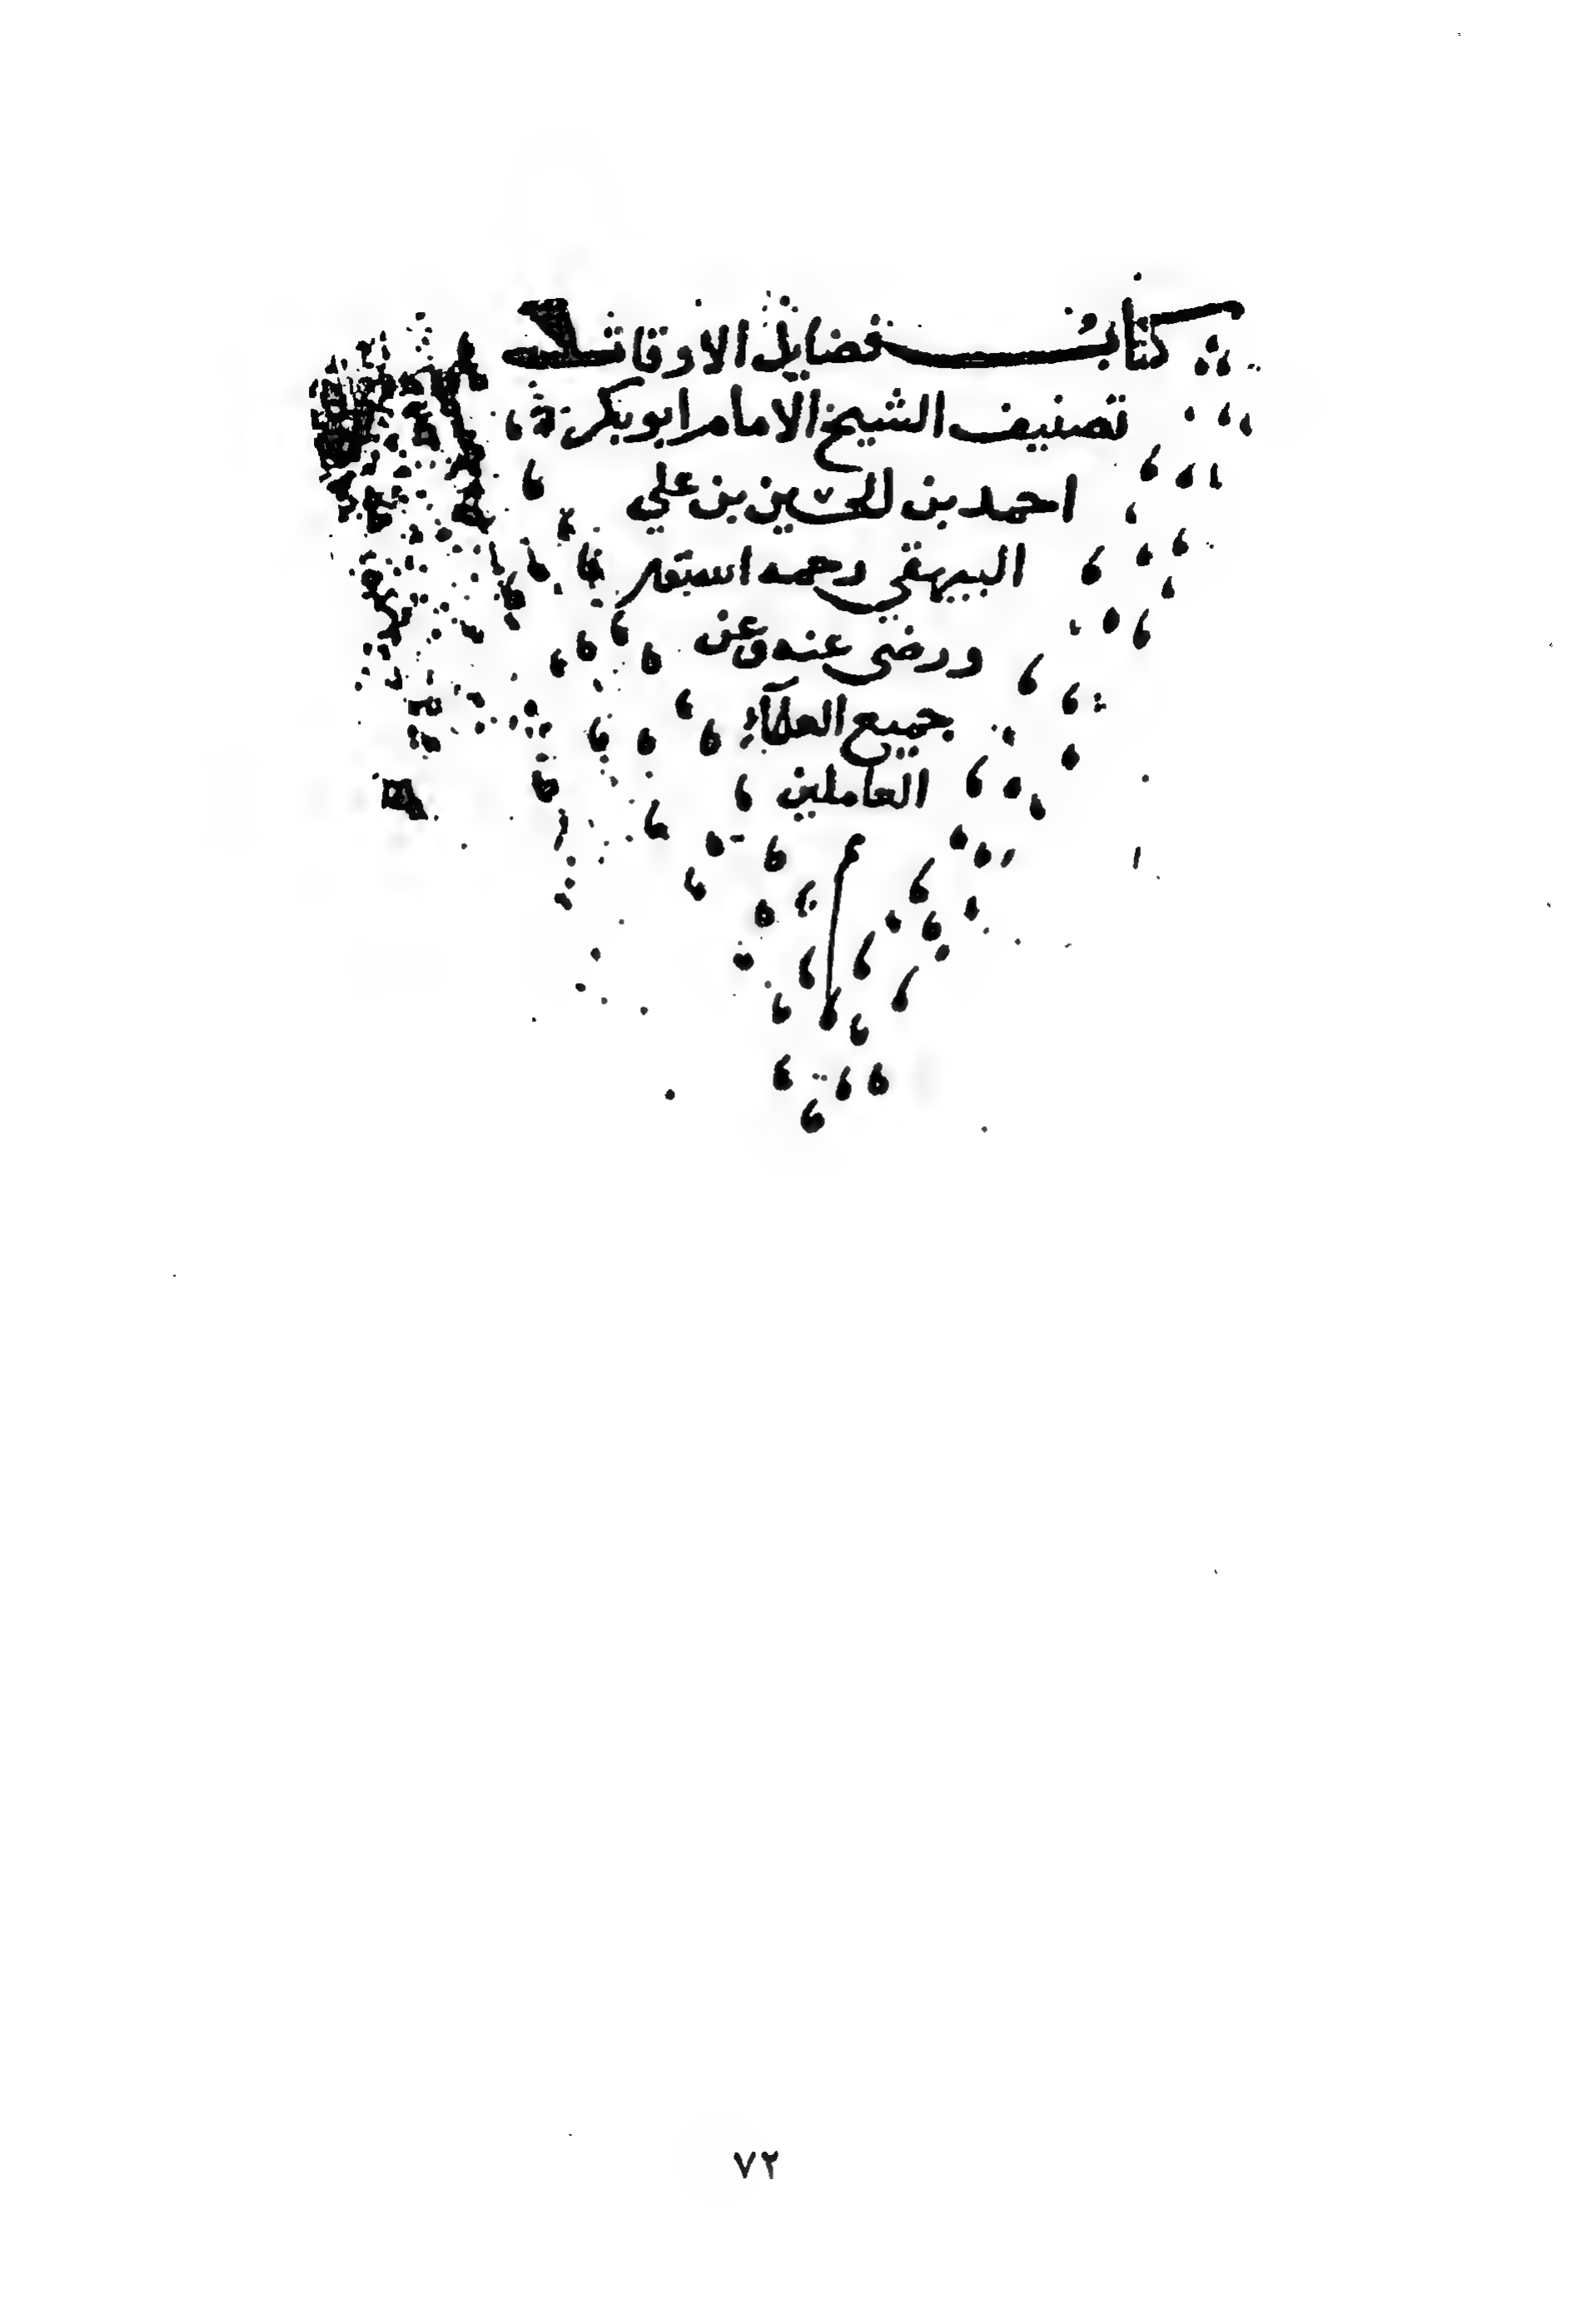 كتاب فضايل الاوقات
تصنيف الشيخ الامام ابو بكر
احمد بن الحسين بن علي
البيهقي رحمه الله تعلى
ورضى عنه وعن
جميع العلماء
العاملين
م
٧٢